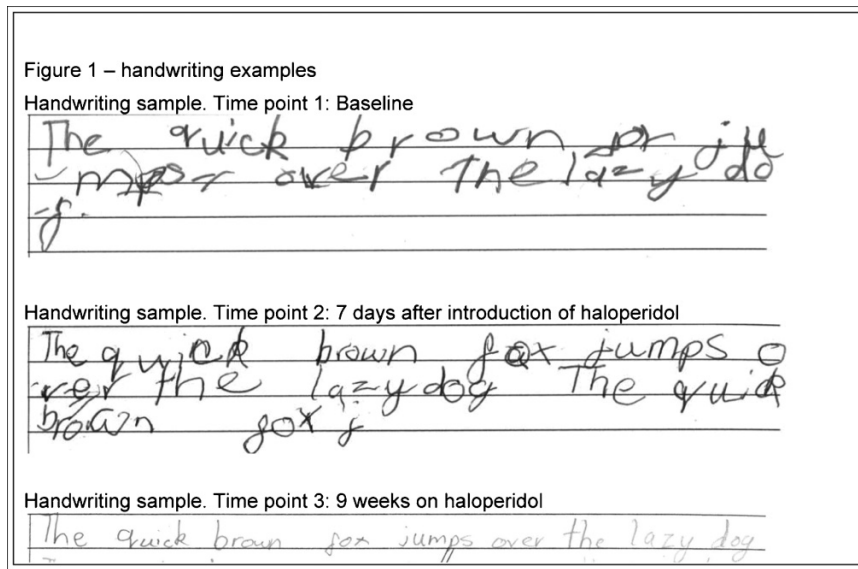 Figure 1 – handwriting examples
Handwriting sample. Time point 1: Baseline
The quick brown fox ju
-mps over The lazy do
-g.
Handwriting sample. Time point 2: 7 days after introduction of haloperidol
The quick brown fox jumps o
ver the lazy dog The quick
brown fox j
Handwriting sample. Time point 3: 9 weeks on haloperidol
The quick brown fox jumps over the lazy dog